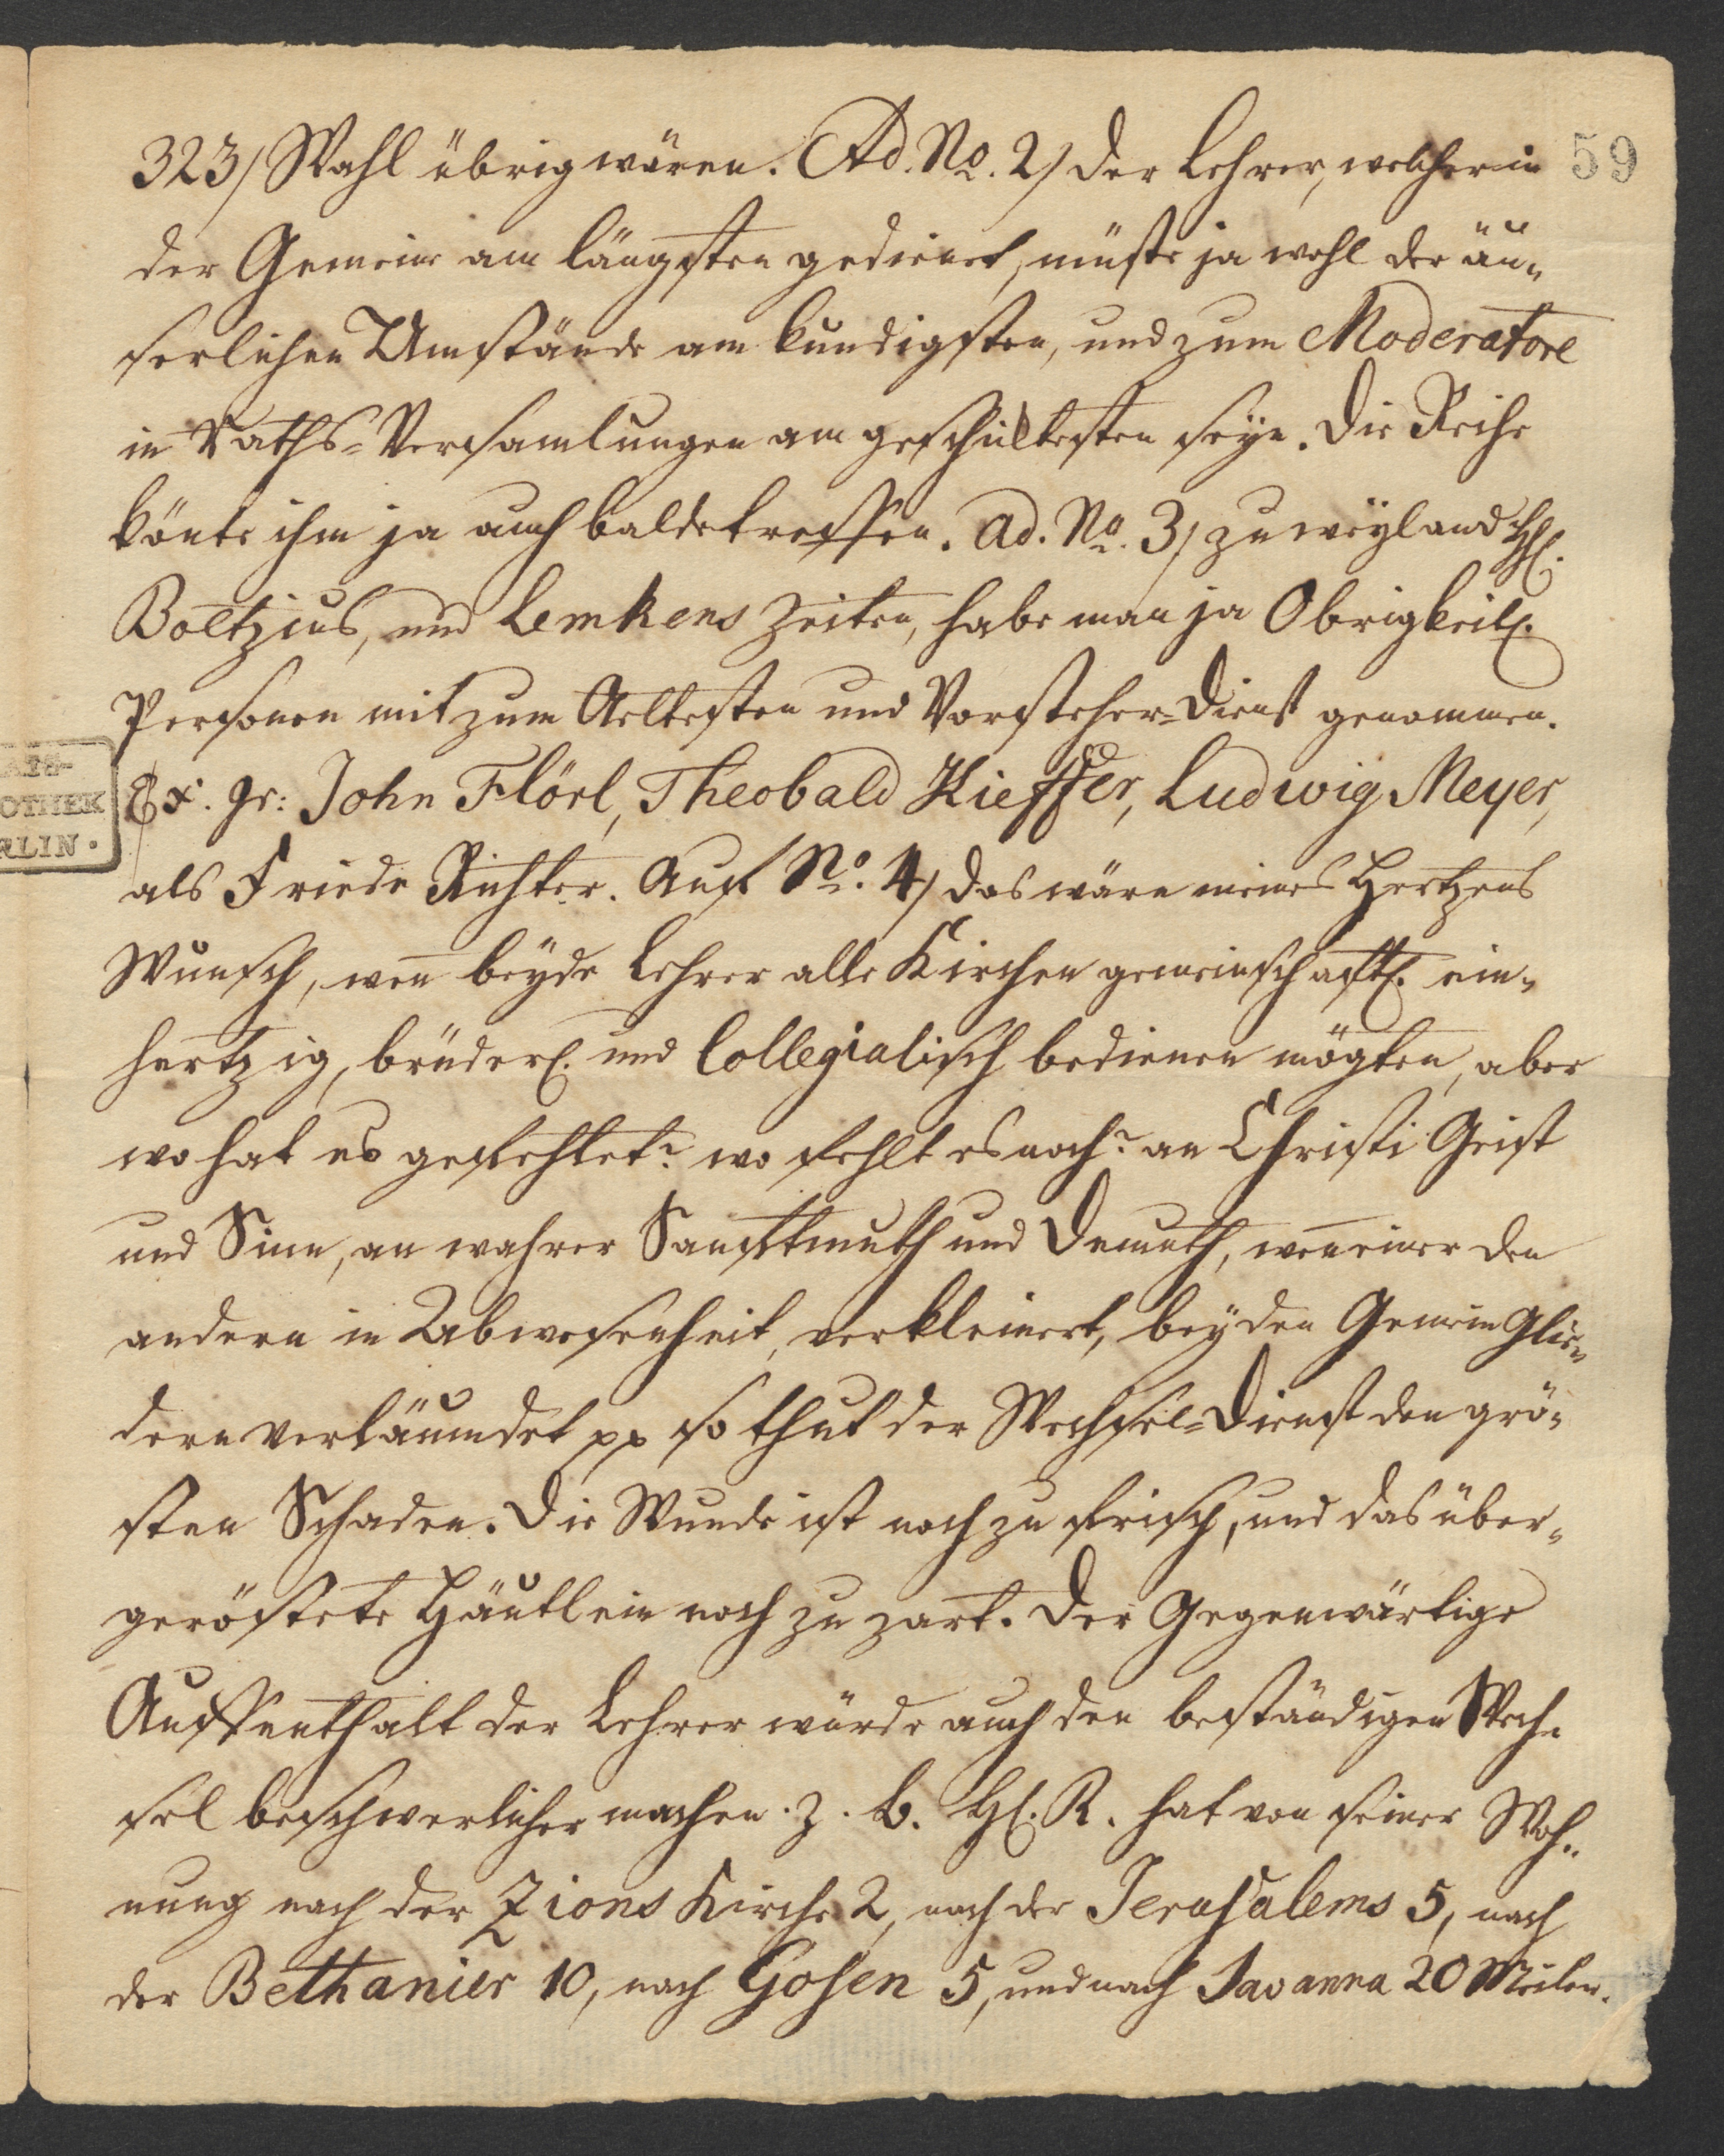 323/ Wahl übrig wären. Ad. No. 2/ der Lehrer, welcher in 59
der Gemeine am längsten gedienet, müste ja wohl der äu„
serlichen Umstände am kundigsten, und zum Moderatore
in Raths-Versamlungen am geschicktesten seyn. Die Reihe
könte ihn ja auch balde treffen. Ad. No. 3/ zu weyland HE.
Boltzius, und Lemkens Zeiten, habe man ja Obrigkeitl.
Personen mit zum Aeltesten und Vorsteher-Dienst genommen.
Ex. gr: John Flörl, Theobald Kieffer, Ludwig Meyer,
als Friede Richter. Auf No. 4/ das wäre meines Hertzens
Wunsch, wen̄ beyde Lehrer alle Kirchen gemeinschaftl. ein„
hertzig, brüderl. und Collegialisch bedienen mögten, aber
wo hat es gefehlet? wo fehlt es noch? an Christi Geist
und Sinn, an wahrer Sanftmuth und Demuth, wen̄ einer den
andern in Abwesenheit, verkleinert, bey den Gemein Glie„
dern verläumdet pp so thut der Wechsel-Dienst den grö„
sten Schaden. Die Wunde ist noch zu frisch, und das über„
geröstete Häutlein noch zu zart. Der Gegenwärtige
Auffenthalt der Lehrer würde auch den beständigen Wech„
sel beschwerlicher machen. z. b. HE. R. hat von seiner Woh„
nung nach der Zions Kirche 2, nach der Jerusalems 5, nach
der Bethanier 10, nach Gosen 5, und nach Savanna 20 Meilen.
ATS-
OTHEK
RLIN.